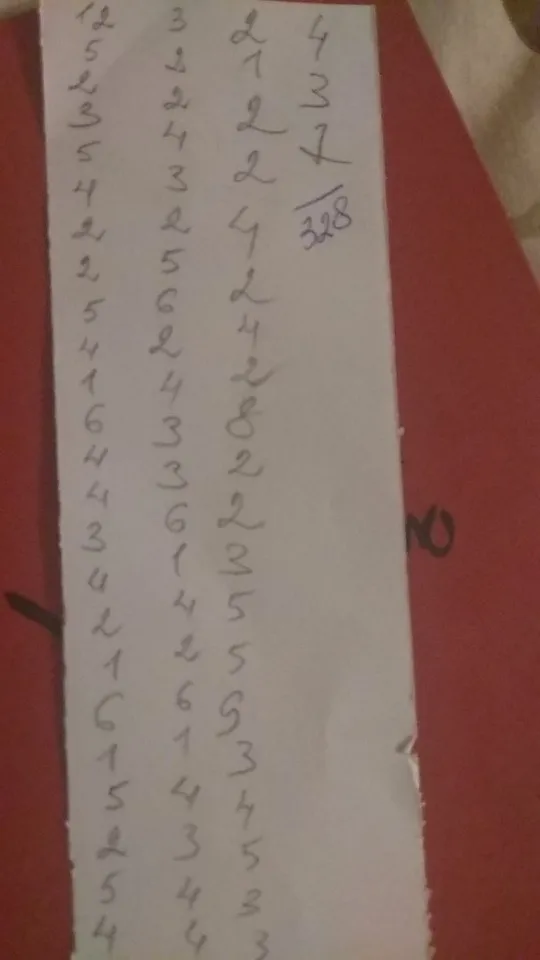 12
5
2
3
5
4
2
2
5
4
1
6
4
4
3
4
2
1
6
1
5
2
5
4
3
2
2
4
3
2
5
6
2
4
3
3
6
1
4
2
6
1
4
3
4
4
2
1
2
2
4
2
4
2
8
2
2
3
5
5
3
4
5
3
3
4
3
328